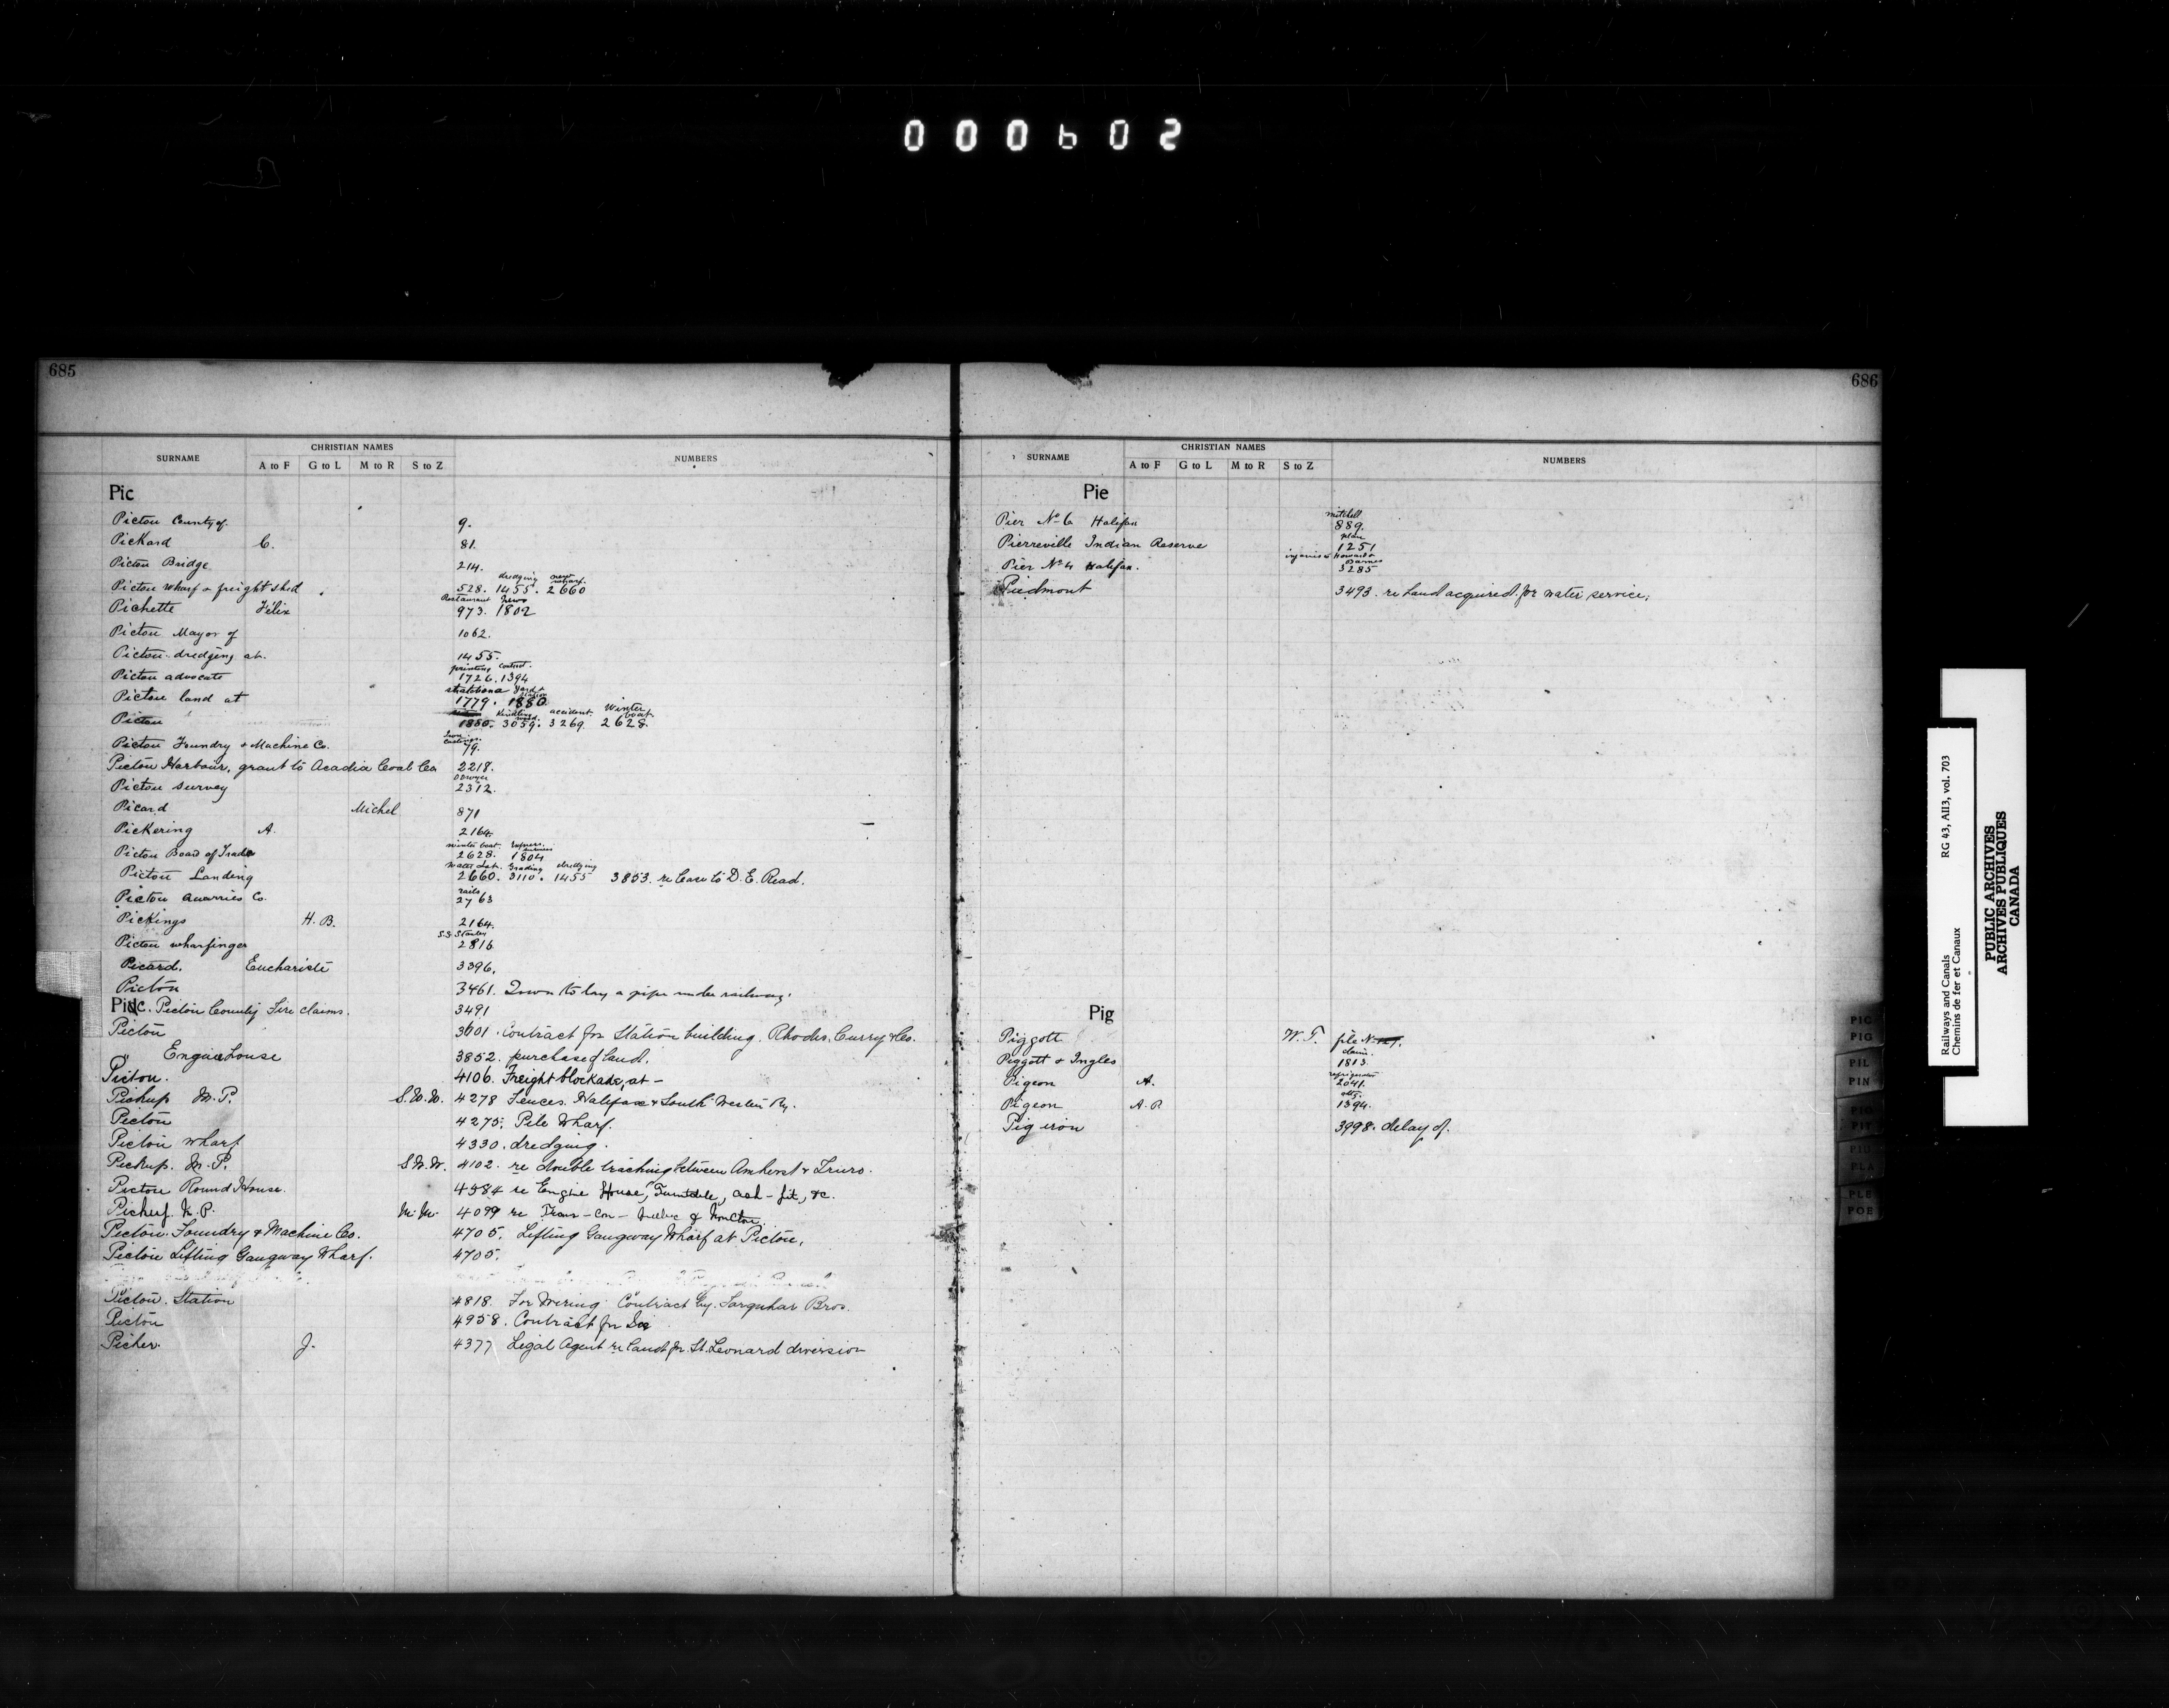 000602
685
SURNAME CHRISTIAN NAMES NUMBERS
A to F G to L M to R S to Z
Pic
Pictou County of 9.
Pickard C. 81.
Pictou Bridge 214.
dredging new wharf
Pictou wharf & freight shed 528. 1455. 2660
Restaurant News
Pichette Félix 973. 1802
Pictou Mayor of 1062.
Pictou dredging at. 1455.
printing contract.
Pictou advocate 1726. 1394
Strathcona Yard & Station
Pictou land at 1779. 1880
Kindling wood. accident. Winter boat.
Pictou 1880. 3059. 3269. 2628.
Iron Castings.
Pictou Foundry & Machine Co. 79.
Pictou Harbour, grant to Acadia Coal Co 2218.
Pictou Survey 2312.
Picard Michel 871
Pickering A. 2164.
winter boat. Express business
Pictou Board of Trade 2628. 1804
Water Lot. Grading dredging
Pictou Landing 2660. 3110. 1455 3853. re Lease to D. E. Read.
rails
Pictou Quarries Co. 2763
Pickings H. B. 2164.
S.S. Stanley
Pictou wharfinger 2816
Picard. Euchariste 3396.
Pictou 3461. Town to lay a pipe under railway.
Pic. Pictou County Fire claims. 3491
Pictou 3601. Contract for Station building. Rhodes, Curry & Co.
" Engine House 3852. purchase of land.
Pictou. 4106. Freight blockade, at —
Pickup M.P. S.W.W. 4278 Fences. Halifax & South Western Ry.
Pictou 4275. Pile Wharf.
Pictou wharf 4330. dredging.
Pickup. M.P. S.W.W. 4102. re double tracking between Amherst & Truro.
Pictou Round House. 4584 re Engine House, Turntable, ash-pit, &c.
Pickup M.P. 4099 re Trans-Con- Quebec & Moncton.
Pictou Foundry & Machine Co. 4705. Lifting Gangway Wharf at Pictou.
Pictou Lifting Gangway Wharf. 4705.
Pictou. Station 4818. For Wiring Contract by. Farquhar Bros.
Pictou 4958. Contract for
Picher. J. 4377 Legal Agent re land for St. Leonard diversion
686
SURNAME CHRISTIAN NAMES NUMBERS
A to F G to L M to R S to Z
Pie
mitchell
Pier No 6 Halifax 889.
plan
Pierreville Indian Reserve 1251
injuries to Howard Barnes
Pier No 4 Halifax. 3285
Piedmont 3493. re Land acquired for water service.
Pig
Piggott W. T. file No
claim.
Piggott & Ingles 1813.
refrigerator
Pigeon A. 2041.
Pigeon A. R 1394.
Pig iron 3998. delay of.
PIC
PIG
PIL
PIN
PIO
PIT
PIU
PLA
PLE
POE
Railways and Canals RG 43, AII3, vol. 703
Chemins de fer et Canaux
PUBLIC ARCHIVES
ARCHIVES PUBLIQUES
CANADA